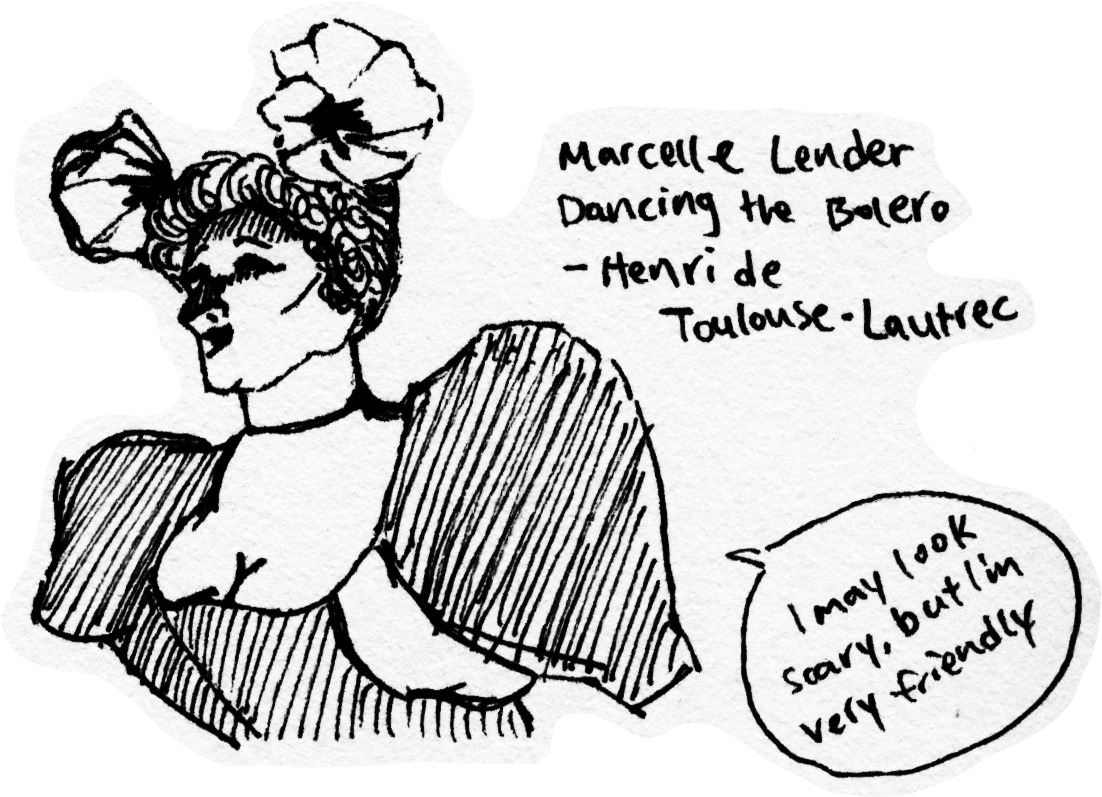 Marcelle Lender
Dancing the Bolero
- Henri de
Toulouse-Lautrec
I may look
scary, but I'm
very friendly